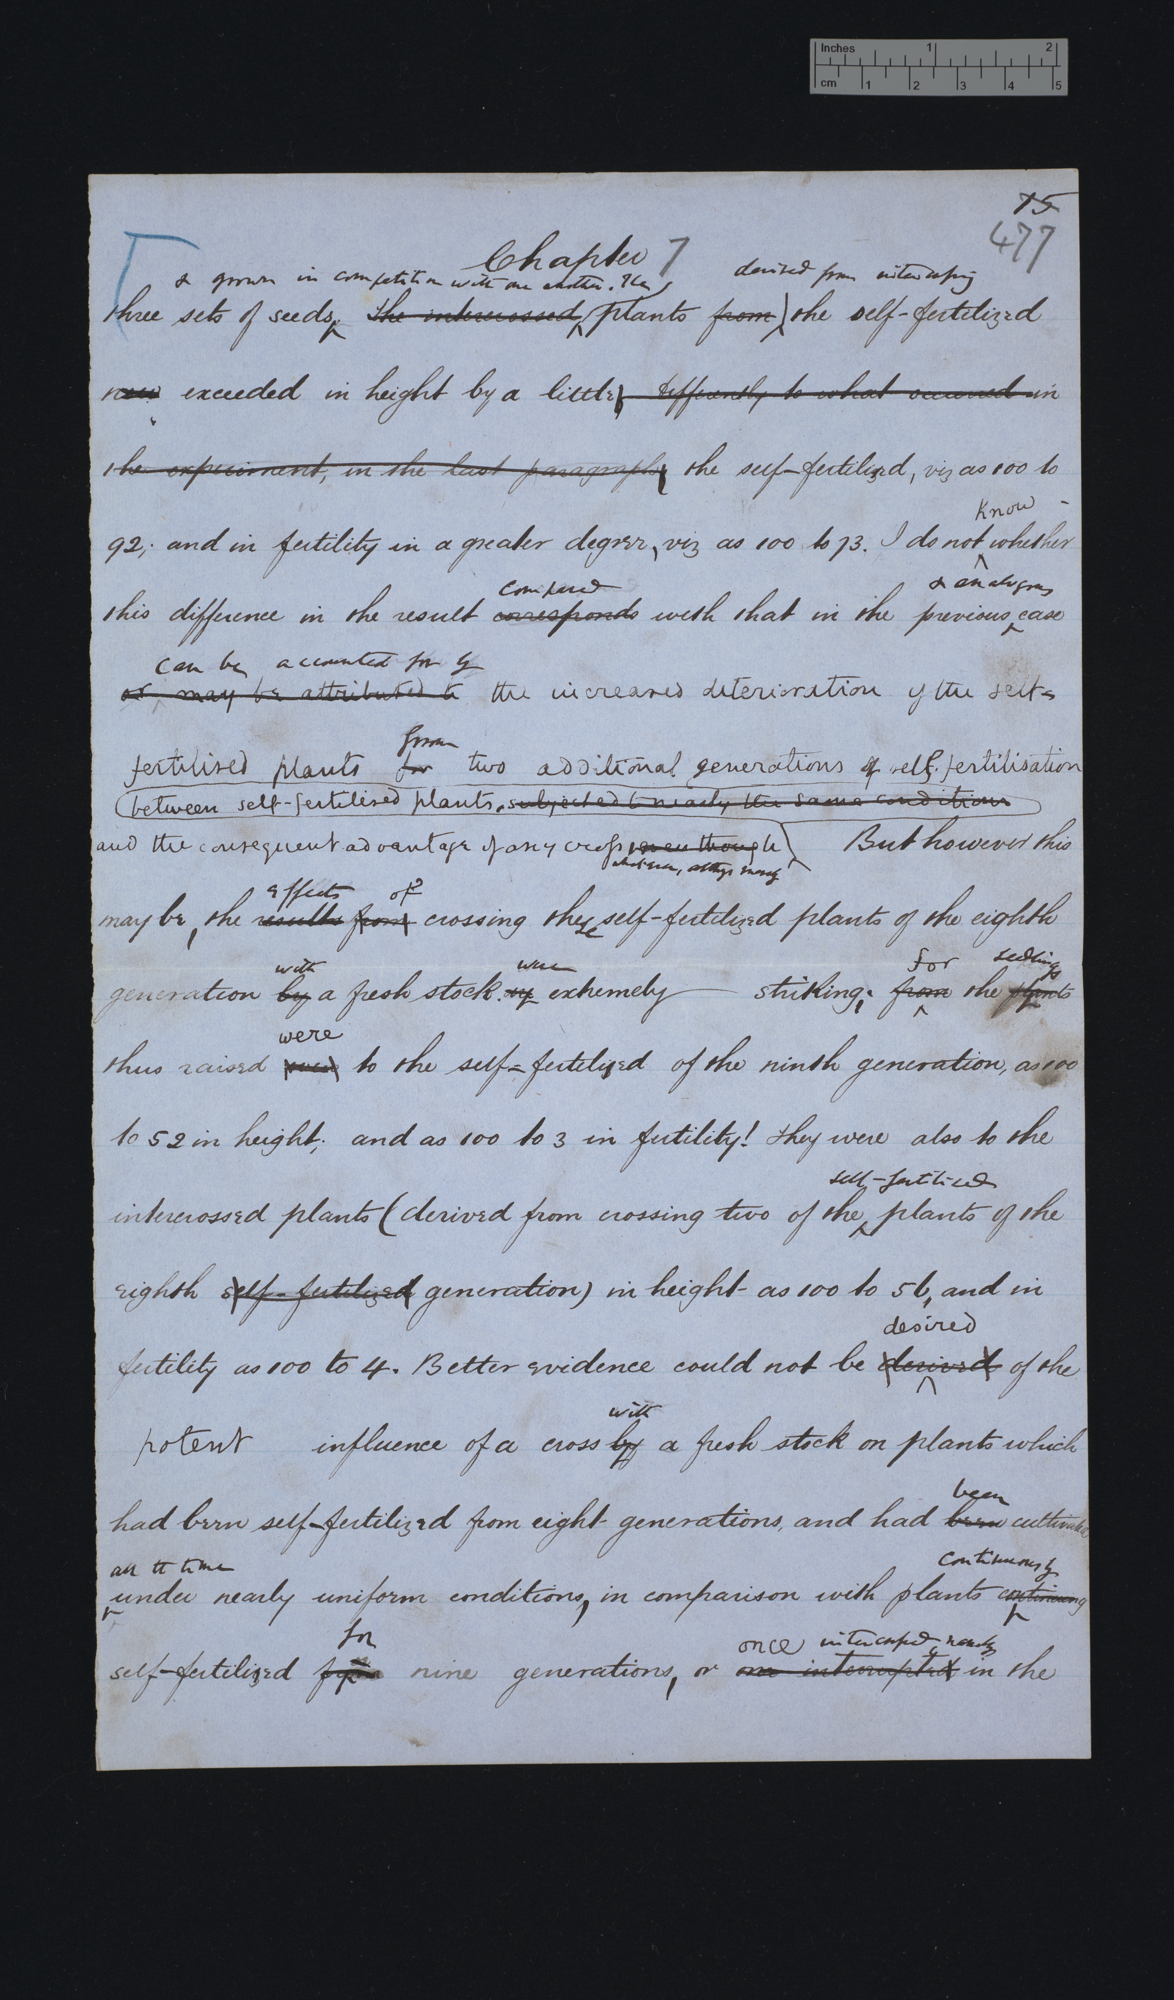 Inches 1 2
cm 1 2 3 4 5
75
477
Chapter 7
& grown in competition with one another. The derived from intercrossing
three sets of seeds, the intercrossed plants from the self-fertilized
now exceeded in height by a little, differently to what occurred in
the experiment, in the last paragraph, the self-fertilized, viz as 100 to
know
92; and in fertility in a greater degree, viz as 100 to 73. I do not whether
compared & analogous
this difference in the result corresponds with that in the previous case
can be accounted for by
or may be attributed to the increased deterioration of the self-
from
fertilised plants for two additional generations of self-fertilisation
between self-fertilised plants, subjected to nearly the same conditions
and the consequent advantage of any cross even though But however this
effects of
may be, the results from crossing these self-fertilized plants of the eighth
with were for seedlings
generation by a fresh stock extremely striking; from the plants
were
thus raised were to the self-fertilized of the ninth generation, as 100
to 52 in height; and as 100 to 3 in fertility! They were also to the
self-fertilised
intercrossed plants (derived from crossing two of the plants of the
eighth self-fertilized generation) in height as 100 to 56, and in
desired
fertility as 100 to 4. Better evidence could not be derived of the
with
potent influence of a cross by a fresh stock on plants which
been
had been self-fertilized from eight generations, and had been cultivated
all the time continuously
under nearly uniform conditions, in comparison with plants continuing
for once intercrossed, namely
self-fertilized from nine generations, or one interrupted in the